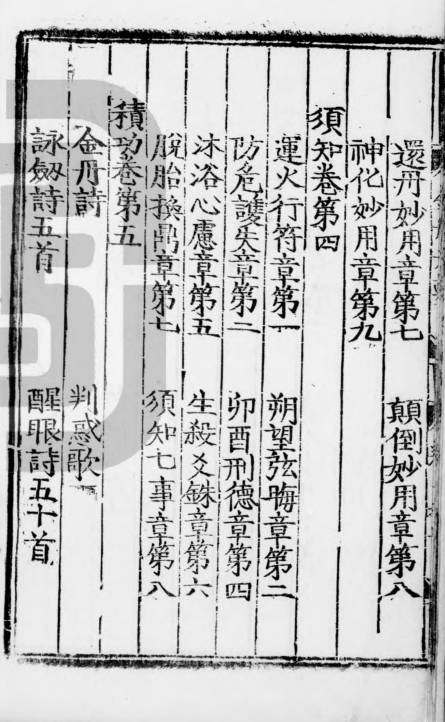 還丹妙用章第七　顛倒妙用章第八
神化妙用章第九
須知卷第四
運火行符章第一　朔望弦晦章第二
防危護失章第三　卯酉刑德章第四
沐浴心慮章第五　生殺爻銖章第六
脫胎換鼎章第七　須知七事章第八
積功卷第五
金丹詩　判惑歌
詠劔詩五首　醒眼詩五十首